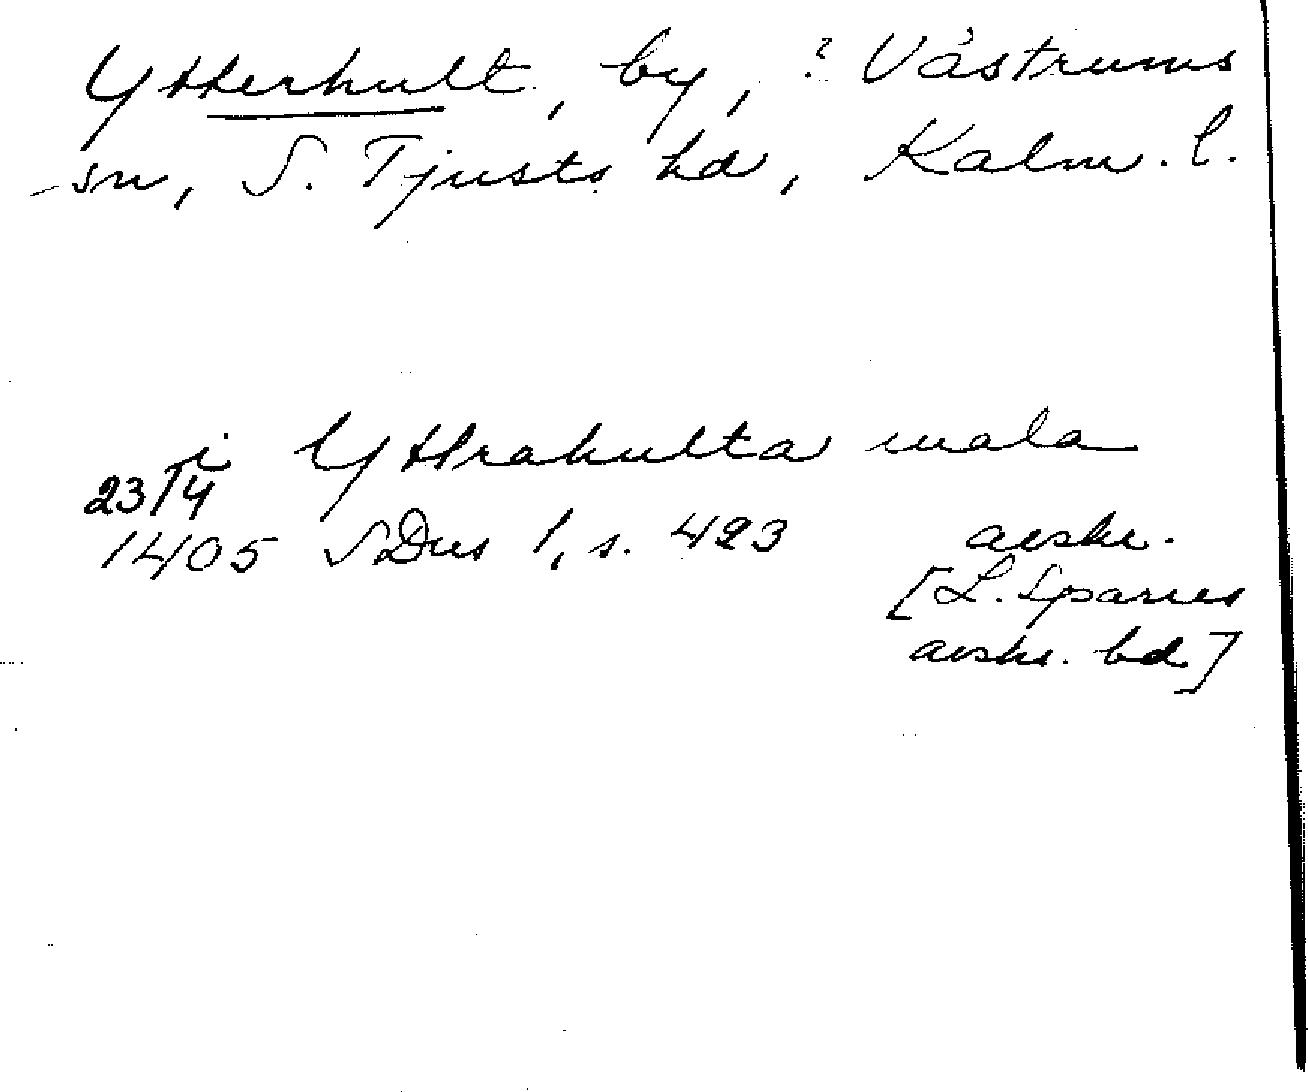 Ytterhult, by, ? Västrums
sn, S. Tjusts hd, Kalm. l.
i Yttrahulta mala
23/4
1405 SDns 1, s. 423 avskr.
[L. Sparres
avskr. bd]